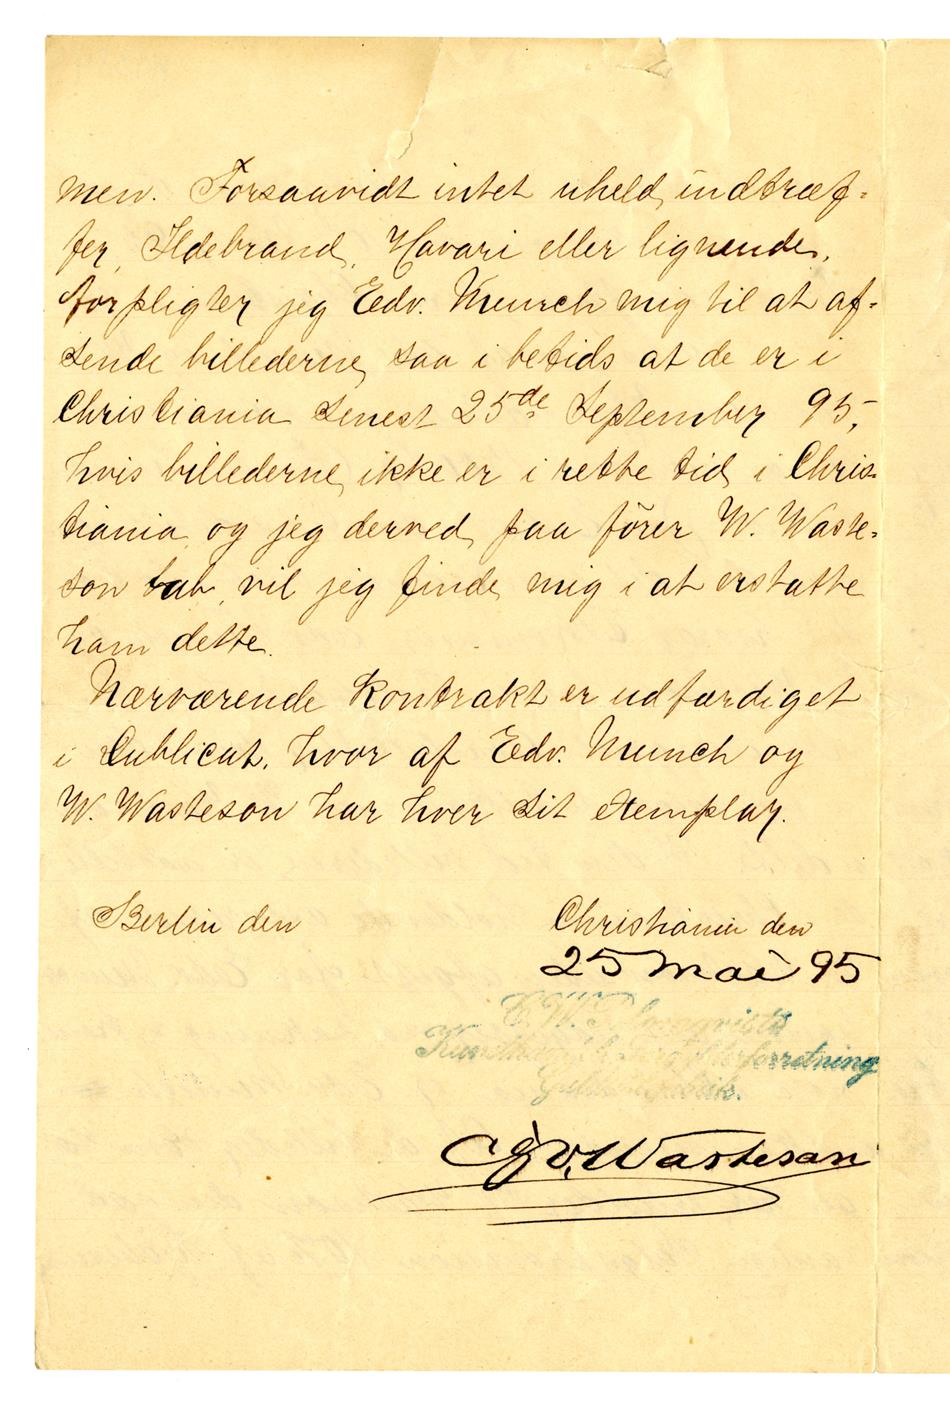 men. Forsaavidt intet uheld indtræf-
fer, Ildebrand, Havari eller lignende,
forpligter jeg Edv. Munch mig til at af-
sende billederne saa i betids at de er i
Christiania senest 25de September 95,
hvis billederne ikke er i rette tid i Chris-
tiania og jeg derved paa förer W. Waste-
son tab, vil jeg finde mig i at erstatte
ham dette.
Nærværende Kontrakt er udfærdiget
i Dublicat, hvor af Edv. Munch og
W. Wasteson har hver sit exemplar.
Berlin den
Christiania den
25 Mai 95
C. W. Blomqvists
forretning
W. Wasteson